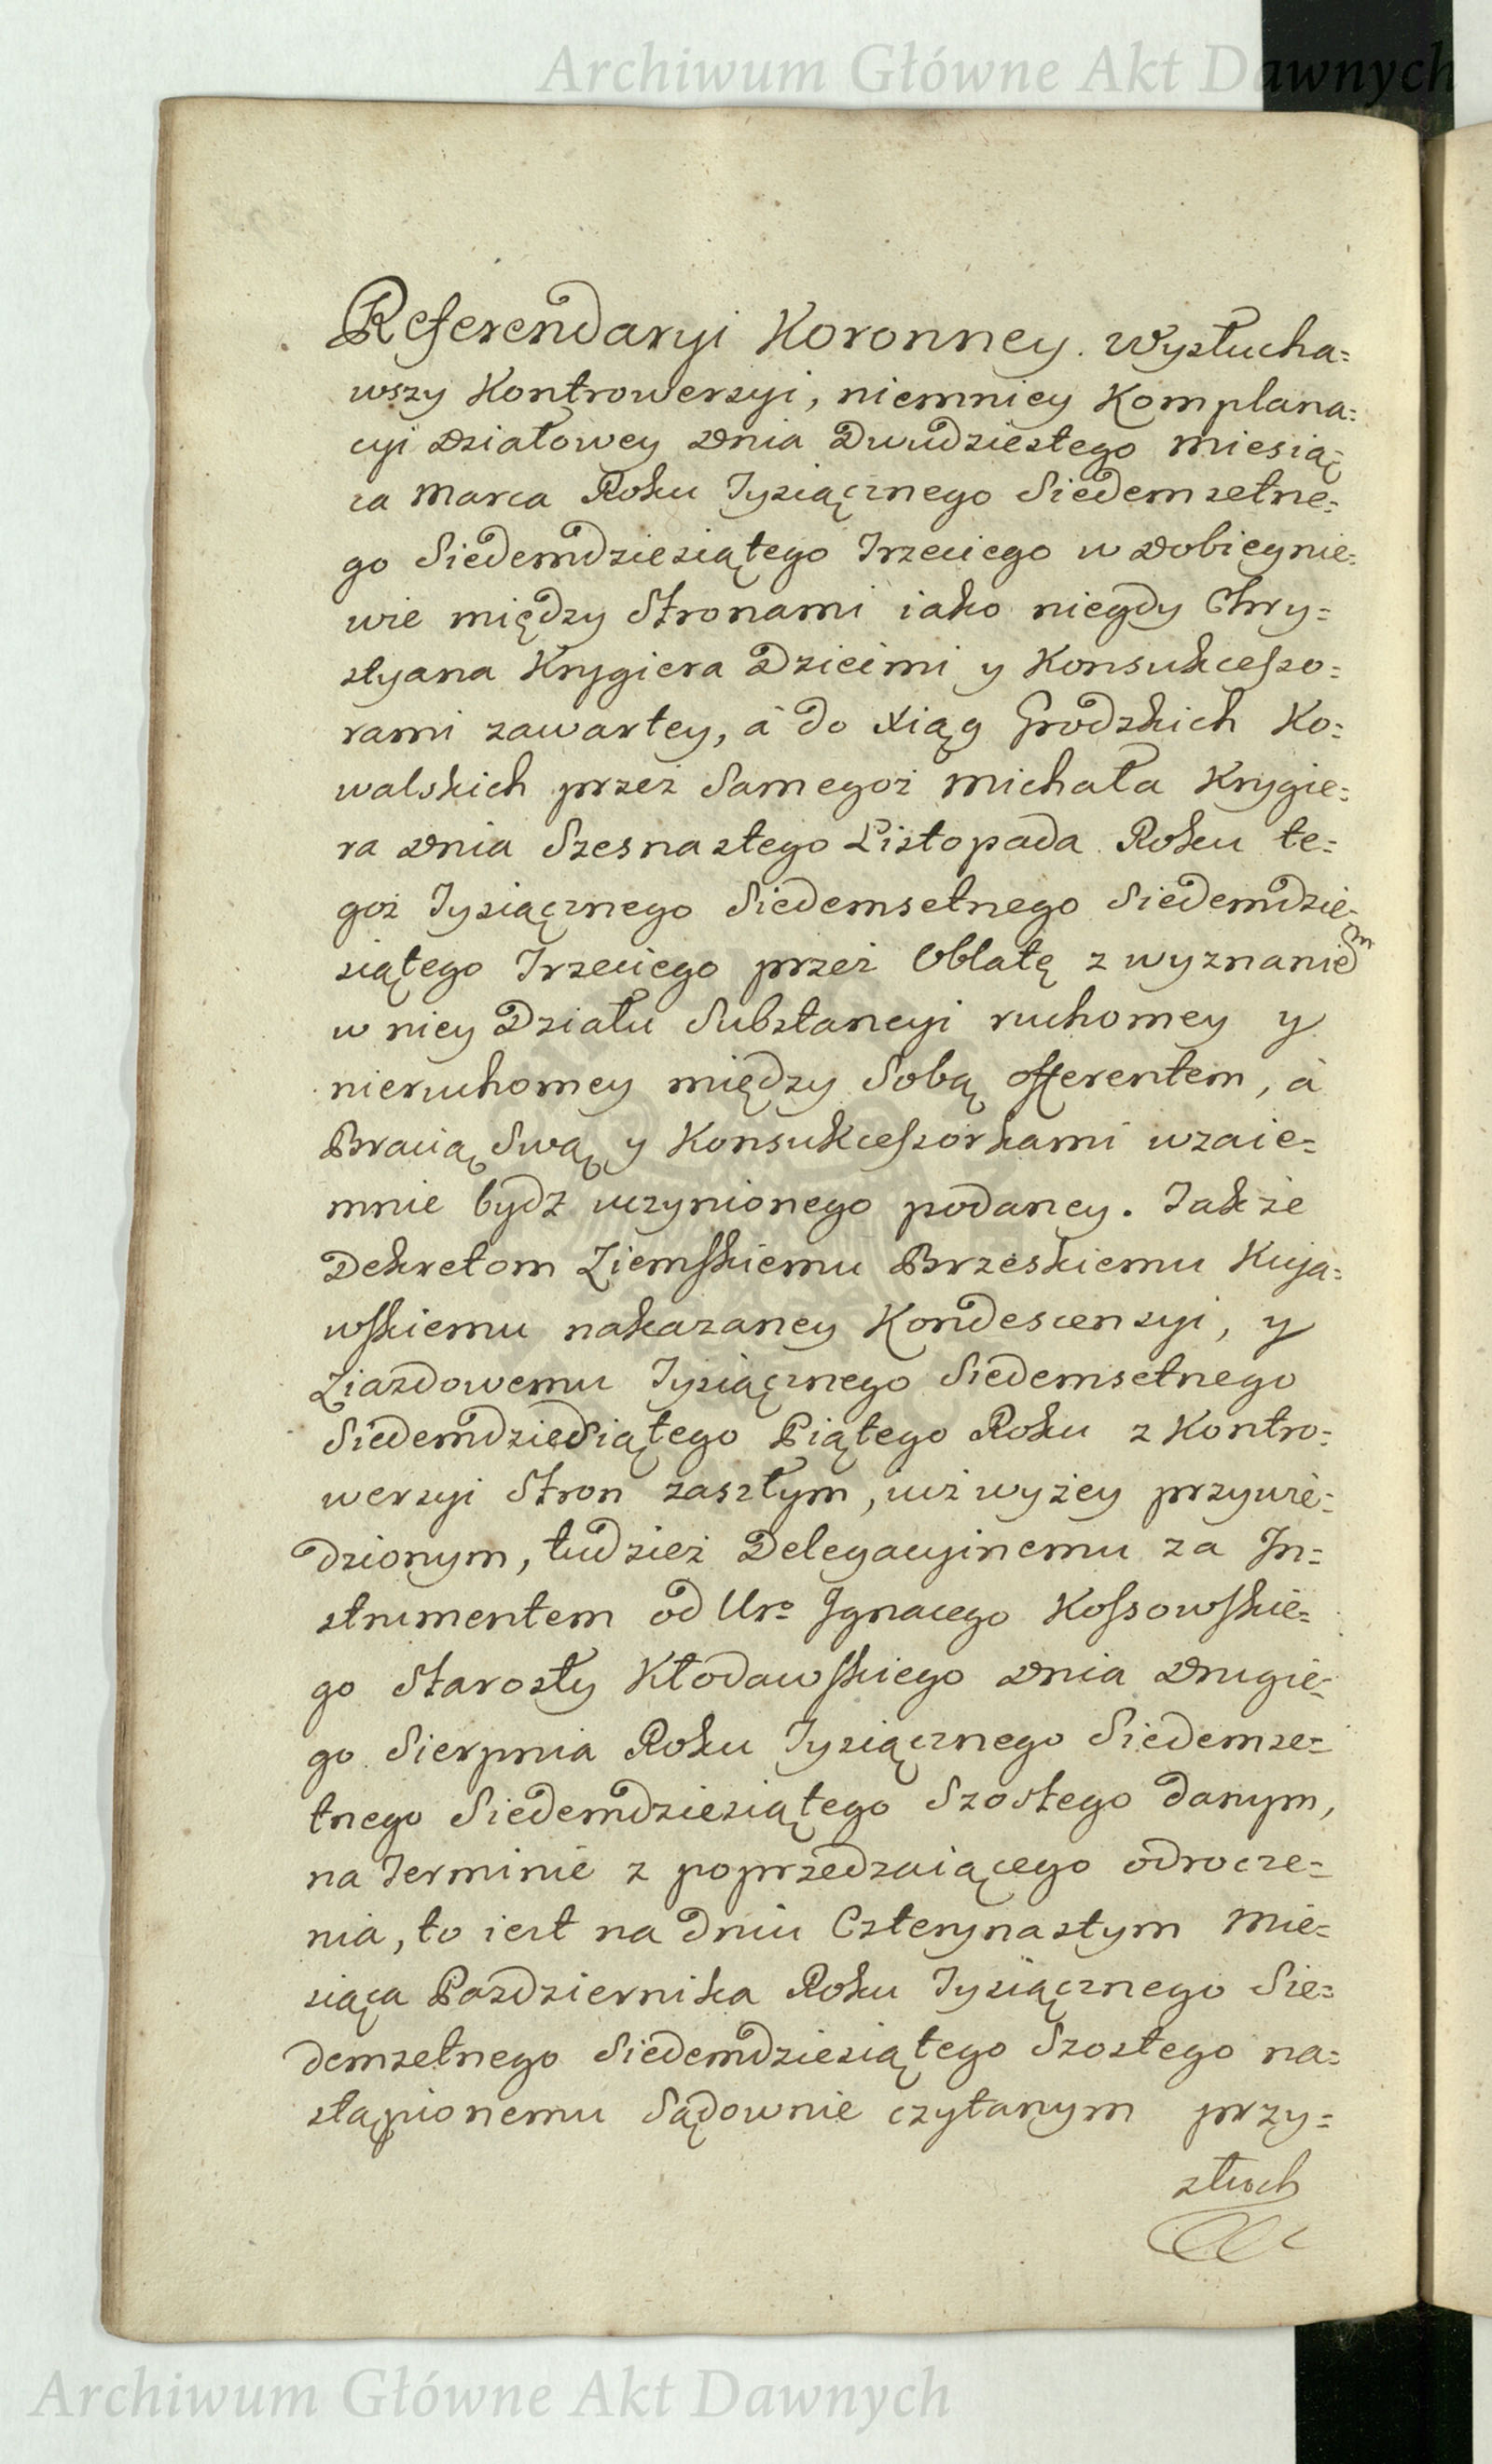 Archiwum Główne Akt Dawnych
Referendaryi Koronney. Wysłucha=
wszy Kontrowersyi, niemniey Komplana=
cyi Działowey Dnia Dwudziestego Miesią=
ca Marca Roku Tysiącznego Siedemsetne=
go Siedemdziesiątego Trzeciego w Dobiegnie=
wie między Stronami iako niegdy Chry=
styana Krygiera Dziećmi y Konsukcesso=
rami zawartey, á do Xiąg Grodzkich Ko=
walskich przez Samegoż Michała Krygie=
ra Dnia Szesnastego Listopada Roku te=
goż Tysiącznego Siedemsetnego Siedemdzie=
siątego Trzeciego przez Oblatę z wyznaniem
w niey Działu Substancyi ruchomey y
nieruchomey między Sobą offerentem, á
Bracią Swą y Konsukcessorkami wzaie=
mnie bydź uczynionego podaney. Także
Dekretom Ziemskiemu Brzeskiemu Kuja=
wskiemu nakazaney Kondescensyi, y
Ziazdowemu Tysiącznego Siedemsetnego
Siedemdziesiątego Piątego Roku z Kontro=
wersyi Stron zaszłym, iuż wyżey przywie=
dzionym, tudzież Delegacyinemu za In=
strumentem od Uro Ignacego Kossowskie=
go Starosty Kłodawskiego Dnia Drugie=
go Sierpnia Roku Tysiącznego Siedemse=
tnego Siedemdziesiątego Szostego danym,
na Terminie z poprzedzaiącego odrocze=
nia, to iest na dniu Czterynastym Mie=
siąca Pazdziernika Roku Tysiącznego Sie=
demsetnego Siedemdziesiątego Szostego na=
stąpionemu Sądownie czytanym przy=
słuch
Archiwum Główne Akt Dawnych